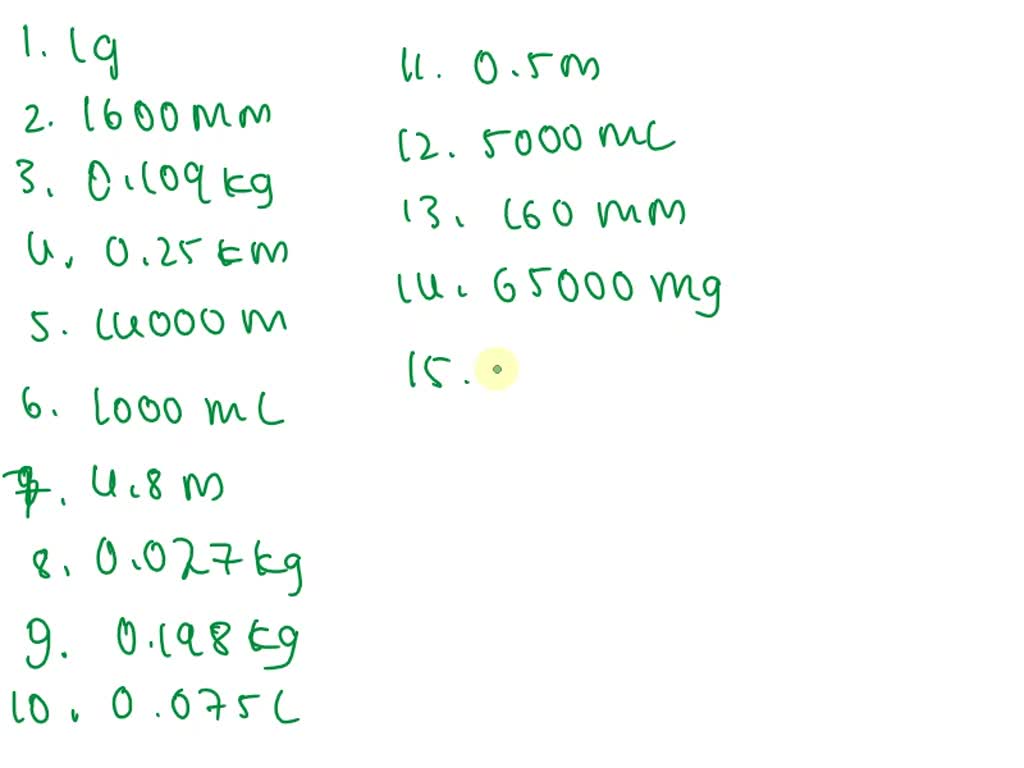 1. 1g
2. 1600 mm
3. 0.109 kg
4. 0.25 km
5. 14000 m
6. 1000 mL
7. 4.8 m
8. 0.027 kg
9. 0.198 kg
10. 0.075 L
11. 0.5 m
12. 5000 mL
13. 160 mm
14. 65000 mg
15.